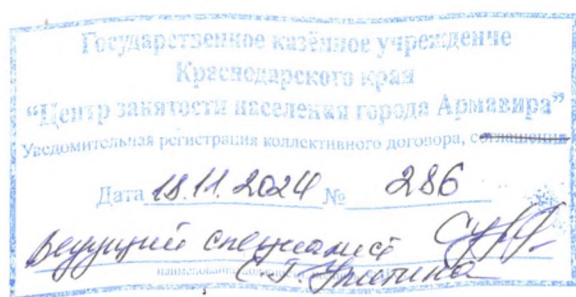 Государственное казённое учреждение
Краснодарского края
“Центр занятости населения города Армавира”
Уведомительная регистрация коллективного договора, соглашения
Дата 18.11.2024 № 286
Ведущий специалист
С.Г.